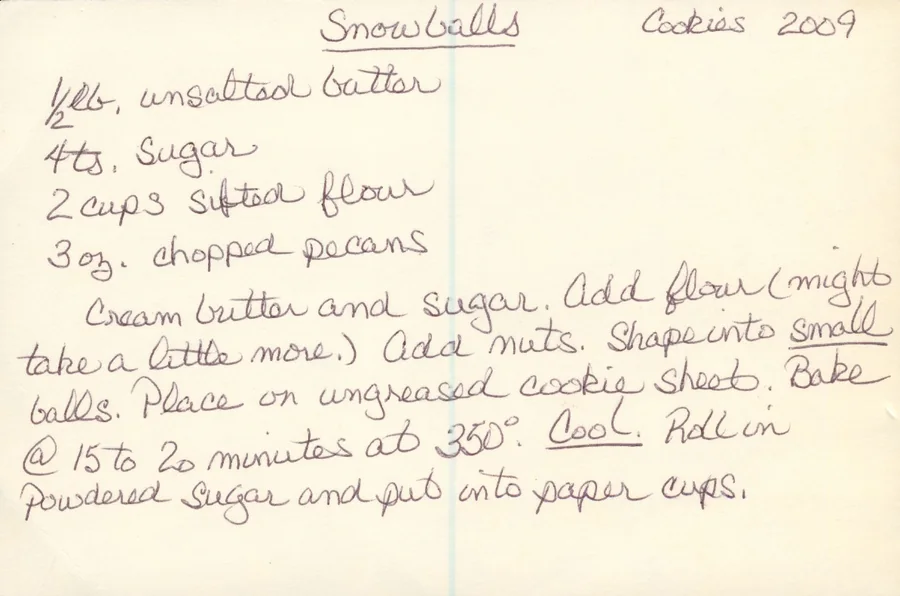 Snowballs Cookies 2009
1/2 lb. unsalted butter
4 ts. sugar
2 cups sifted flour
3 oz. chopped pecans
Cream butter and sugar. Add flour (might
take a little more.) Add nuts. Shape into small
balls. Place on ungreased cookie sheet. Bake
@ 15 to 20 minutes at 350°. Cool. Roll in
Powdered sugar and put into paper cups.